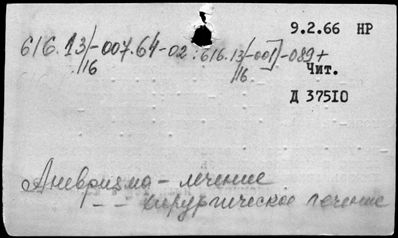 9.2.66 НР
616.13/-007.64-02:616.13/-001]-089+
/16 /16
Чит.
Д 37510
Аневризма - лечение
- - хирургическое лечение